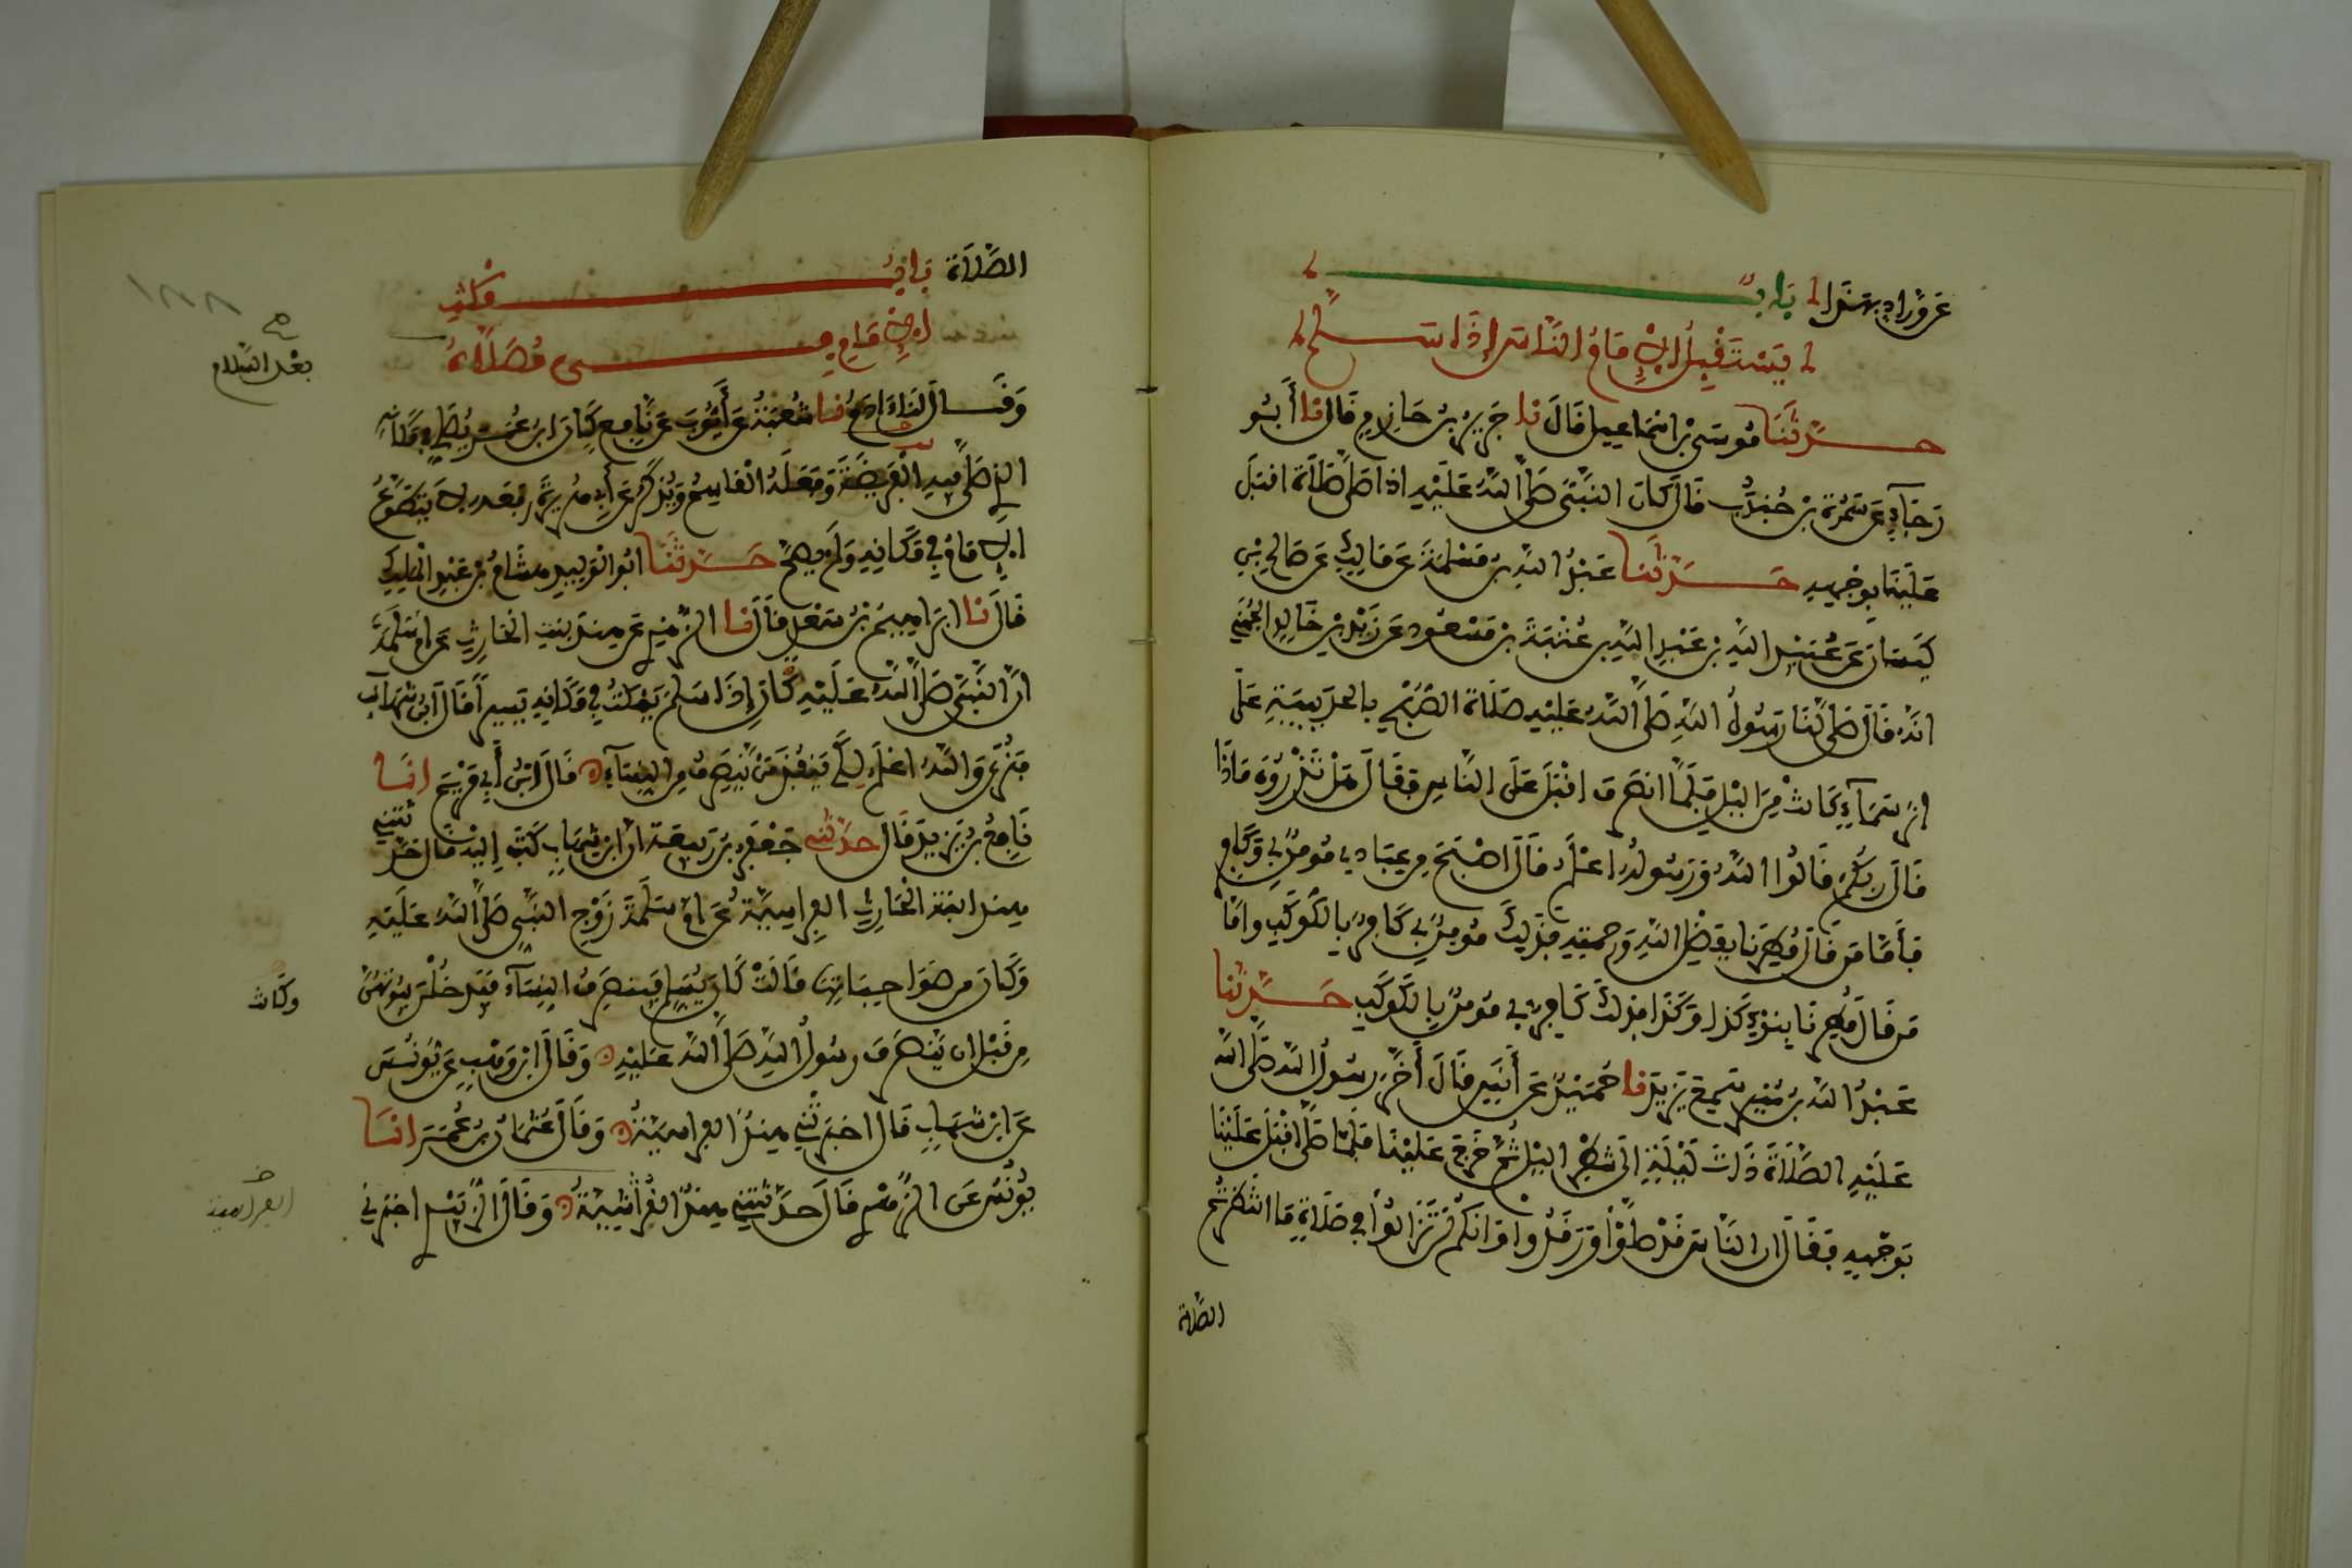 عَن وَرَّادٍ بِهَذَا بَابٌ
يَسْتَقْبِلُ الْإِمَامُ النَّاسَ إِذَا سَلَّمَ
حَدَّثَنَا مُوسَى بْنُ اسْمَاعِيل قَالَ نا جَرِيرُ بْنُ حَازِمٍ قَالَ نا أَبُو
رَجَاءٍ عَن سَمُرَةَ بْنِ جُنْدُبٍ قَالَ كَانَ النَّبِيُّ صَلَّى اللَّهُ عَلَيْهِ اذا صَلَّى صَلَاةً اقبَلَ
عَلَيْنَا بِوَجْهِهِ حَدَّثَنَا عَبْدُ اللَّهِ بْنُ مَسْلَمَةَ عَن مَالِكٍ عَن صَالِحِ بْنِ
كَيْسَانَ عَن عُبَيْدِ اللَّهِ بْنِ عَبْدِ اللَّهِ بْنِ عُتْبَةَ بْنِ مَسْعُودٍ عَن زَيْدِ بْنِ خَالِدٍ الْجُهَنِيِّ
انَّهُ قَالَ صَلَّى لَنَا رَسُولُ اللَّهِ صَلَّى اللَّهُ عَلَيْهِ صَلَاةَ الصُّبْحِ بِالْحُدَيْبِيَةِ عَلَى
اثرِ سَمَاءٍ كَانَتْ مِنَ اللَّيْلِ فَلَمَّا انصَرَفَ اقْبَلَ عَلَى النَّاسِ فَقَالَ هَلْ تَدْرُونَ مَاذَا
قَالَ رَبُّكُمْ قَالُوا اللَّهُ وَرَسُولُهُ اعْلَمُ قَالَ اصْبَحَ مِن عِبَادِي مُومِنٌ بِي وَكَافِرٌ
فَأَمَّا مَن قَالَ مُطِرْنَا بِفَضْلِ اللَّهِ وَرَحْمَتِهِ فَذَلِكَ مُومِنٌ بِي كَافِرٌ بِالْكَوْكَبِ وامَّا
مَن قَالَ مُطِرْنَا بِنَوْءِ كَذَا وَكَذَا فَذَلِكَ كَافِرٌ بِي مُومِنٌ بِالْكَوْكَبِ حَدَّثَنَا
عَبْدُ اللَّهِ بْنُ مُنِيرٍ سَمِعَ يَزِيدَ نا حُمَيْدٌ عَن أَنَسٍ قَالَ أَخَّرَ رَسُولُ اللَّهِ صَلَّى اللَّه
عَلَيْهِ الصَّلَاةَ ذَاتَ لَيْلَةٍ الَى شَطْرِ اللَّيْلِ ثُمَّ خَرَجَ عَلَيْنَا فَلَمَّا صَلَّى اقْبَلَ عَلَيْنَا
بِوَجْهِهِ فَقَالَ ان النَّاسَ قَدْ صَلَّوْا وَرَقَدُوا وَانكُمْ لَن تَزَالُوا فِي صَلَاةٍ مَا انْتَظَرْتُمُ
الصلاة
الصَّلَاةَ بَابُ مُكْثِ
الْإِمَامِ فِي مُصَلَّاهُ
بعْدَ السَّلام
وَقَالَ لَنَا ءَادَمُ نا شُعْبَةُ عَن أَيُّوبَ عَن نَافِعٍ كَانَ ابنُ عُمَرَ يُصَلِّي فِي مَكَانِهِ
الذِي صَلَّى فِيهِ الْفَرِيضَةَ وَفَعَلَهُ الْقَاسِمُ وَيُذْكَرُ عَن أَبِي هُرَيْرَةَ رَفَعَهُ لَا يَتَطَوَّعُ
الْإِمَامُ فِي مَكَانِهِ وَلَمْ يَصِحَّ حَدَّثَنَا ابُو الْوَلِيدِ هِشَامُ بْنُ عَبْدِ الْمَلِكِ
قَالَ نا ابرَاهِيمُ بْنُ سَعْدٍ قَالَ نا الزُّهْرِيُّ عَن هِندٍ بِنتِ الْحَارِثِ عَن امِّ سَلَمَةَ
انَّ النَّبِيَّ صَلَّى اللَّهُ عَلَيْهِ كَانَ إِذَا سَلَّمَ يَمْكُثُ فِي مَكَانِهِ يَسِيراً قَالَ ابْنُ شِهَابٍ
فَنُرَى وَاللَّهُ اعْلَمُ لِكَيْ يَنفُذَ مَن يَنْصَرِفُ مِنَ النِّسَاءِ قَالَ ابْنُ أَبِي مَرْيَمَ انَا
نَافِعُ بْنُ يَزِيدَ قَالَ حَدَّثَنِي جَعْفَرُ بْنُ رَبِيعَةَ ان ابْنَ شِهَابٍ كَتَبَ إِلَيْهِ قَالَ حَدَّثَتْنِي
هِندُ ابْنَةُ الْحَارِثِ الْفِرَاسِيَّةُ عَن امِّ سَلَمَةَ زَوْجِ النَّبِيِّ صَلَّى اللَّهُ عَلَيْهِ
وَكَانَ مِن صَوَاحِبَاتِهَا قَالَتْ كَانَ يُسَلِّمُ فَيَنصَرِفُ النِّسَاءُ فَيَدْخُلْنَ بُيُوتَهُنَّ
وكَانت
مِن قَبْلِ ان يَنْصَرِفَ رسُولُ اللَّهِ صَلَّى اللَّهُ عَلَيْهِ وَقَالَ ابْنُ وَهْبٍ عَن يُونُسَ
عَن ابْنِ شِهَابٍ قَالَ اخبَرَتْنِي هِندُ الفِرَاسِيَّةُ وَقَالَ عُثْمَانُ بْنُ عُمَرَ انَا
يُونُسُ عَنِ الزُّهْرِيِّ قَالَ حَدَّثَتْنِي هِنْدُ القُرَشِيَّةُ وَقَالَ الزُّبَيْدِيُّ اخبَرَنِي
الفراسية